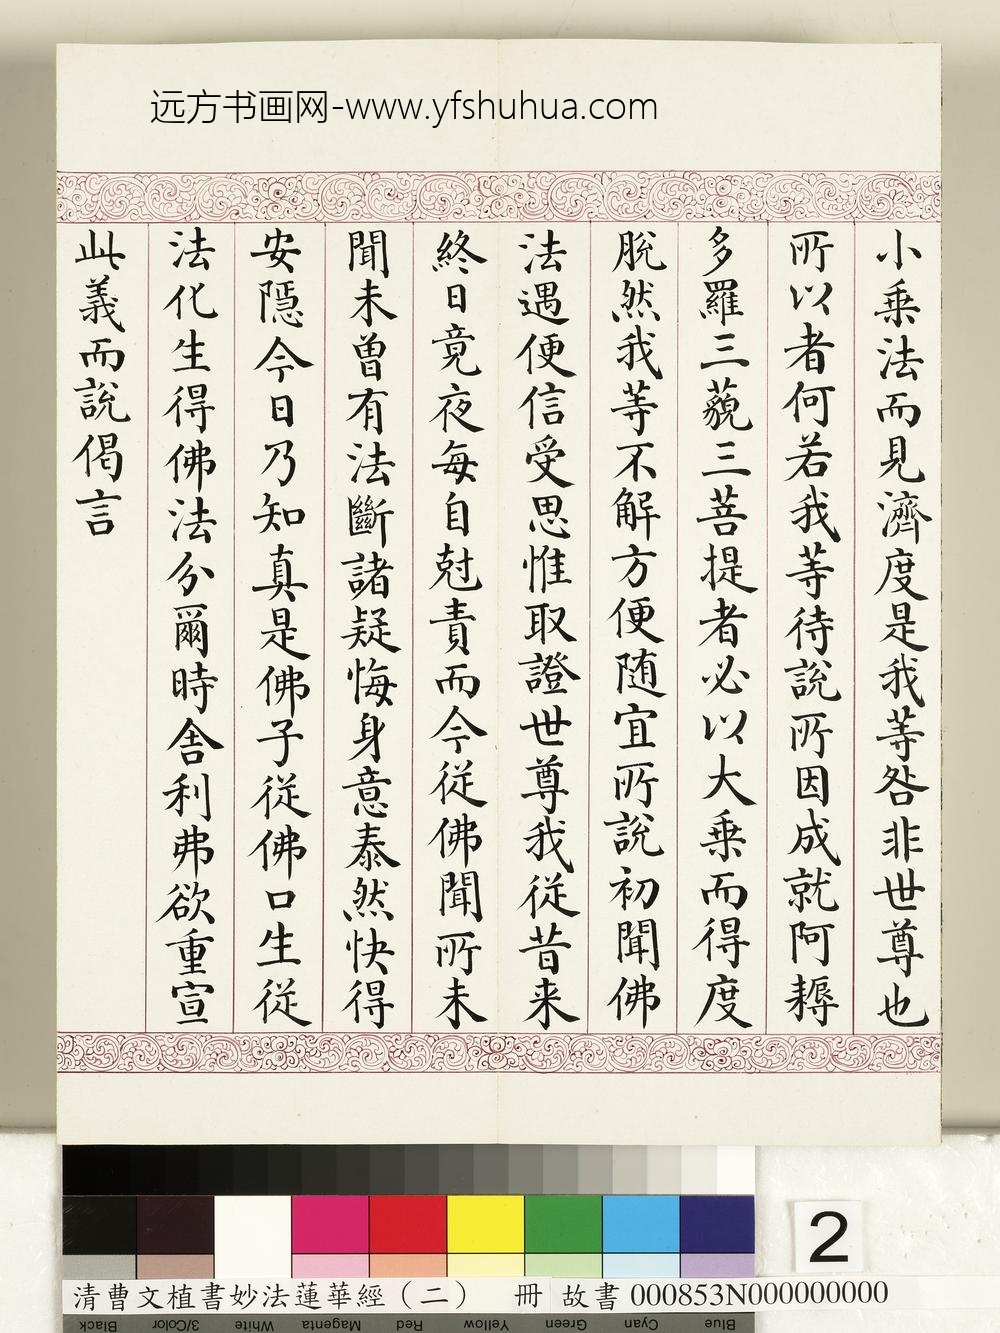 远方书画网-www.yfshuhua.com
小乘法而見濟度是我等咎非世尊也
所以者何若我等待說所因成就阿耨
多羅三藐三菩提者必以大乘而得度
脫然我等不解方便随宜所說初聞佛
法遇便信受思惟取證世尊我從昔来
終日竟夜每自尅責而今從佛聞所未
聞未曾有法斷諸疑悔身意泰然快得
安隱今日乃知真是佛子從佛口生從
法化生得佛法分爾時舍利弗欲重宣
此義而說偈言
2
清曹文植書妙法蓮華經（二） 冊 故書 000853N000000000
Black 3/Color White Magenta Red Yellow Green Cyan Blue